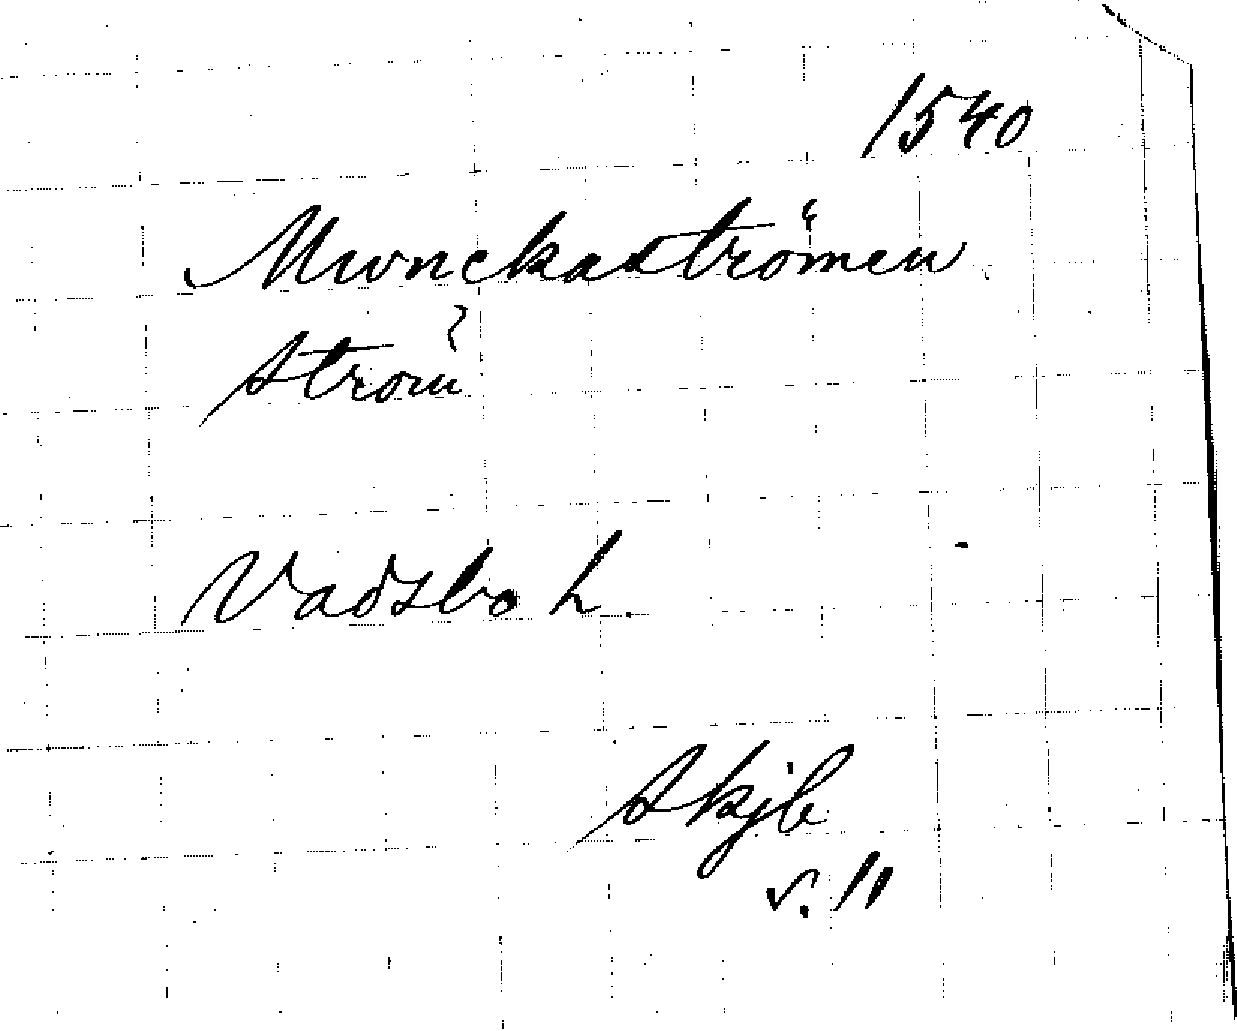 1540
Mwnckaströmen
ström
Vadsbo h.
Skjb
s. 11